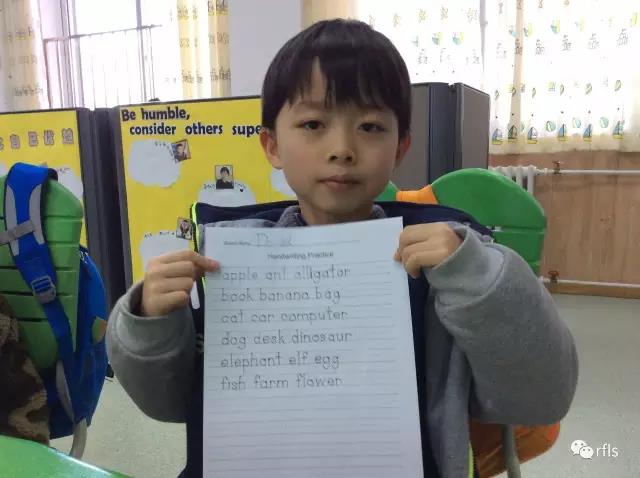 Be humble,
consider others supe
自己比
Handwriting Practice
apple ant alligator
book banana bag
cat car computer
dog desk dinosaur
elephant elf egg
fish farm flower
rfls